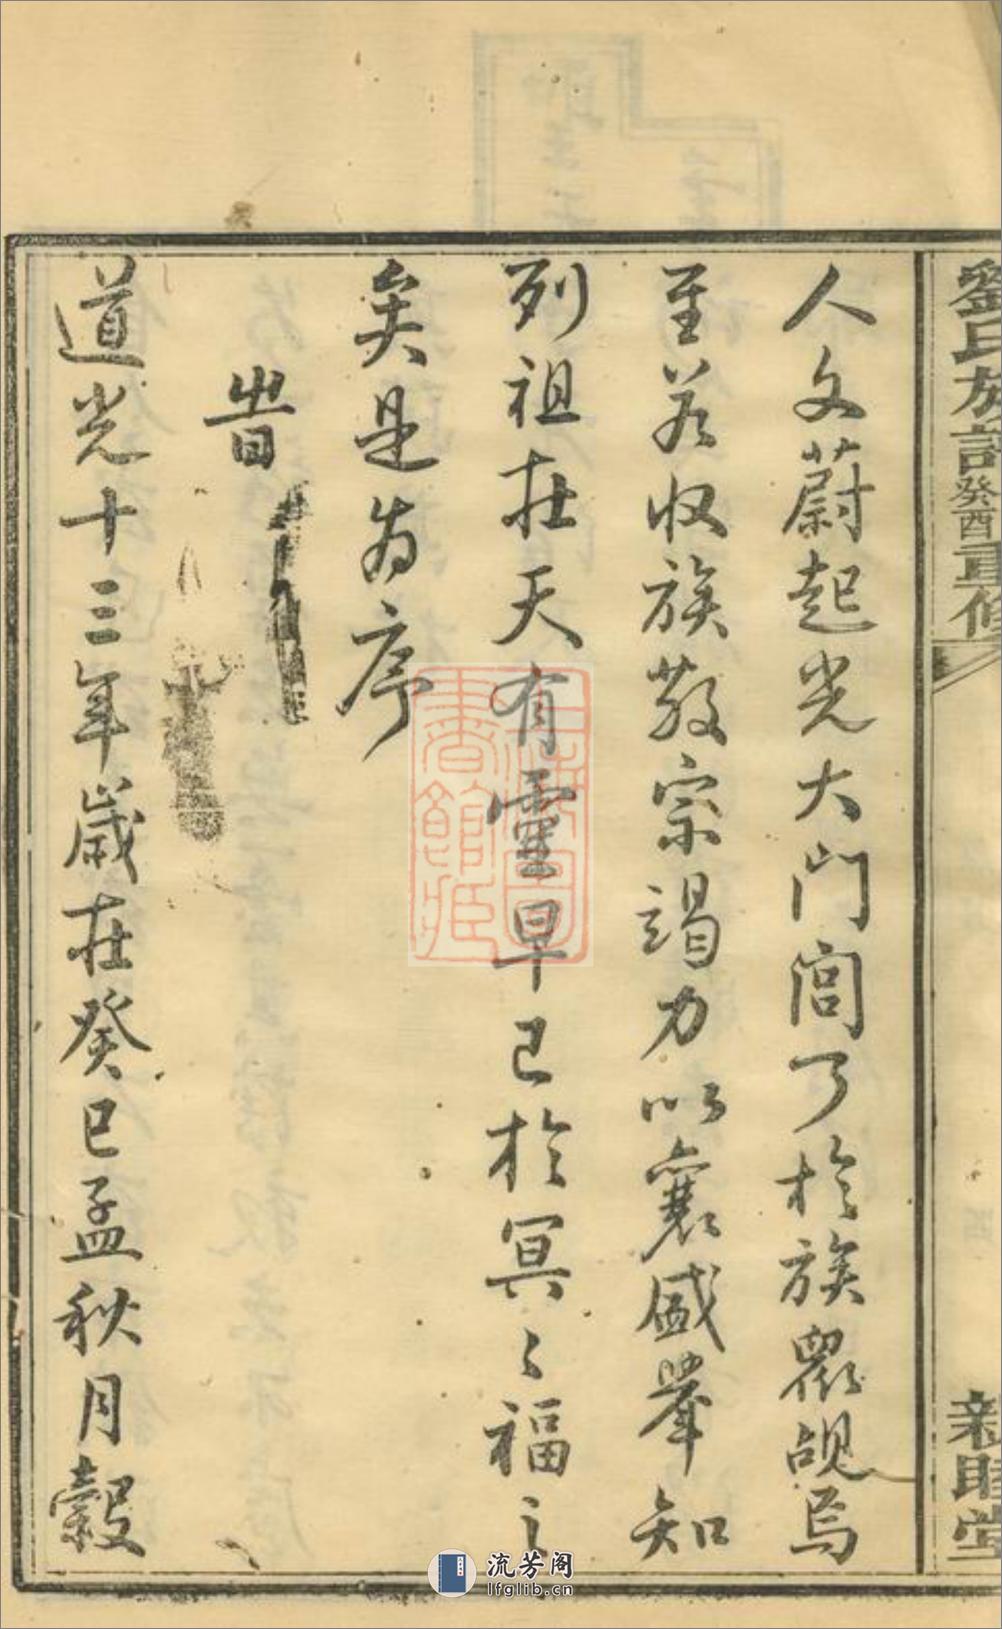 劉氏族譜癸酉重修
親睦堂
人文蔚起光大門閭了於族衆覘焉
至若收族敬宗竭力以襄盛舉知
列祖在天有靈早已於冥〻福之
矣是為序
旹
道光十三年歲在癸巳孟秋月穀
上海圖書館藏
流芳阁
lfglib.cn